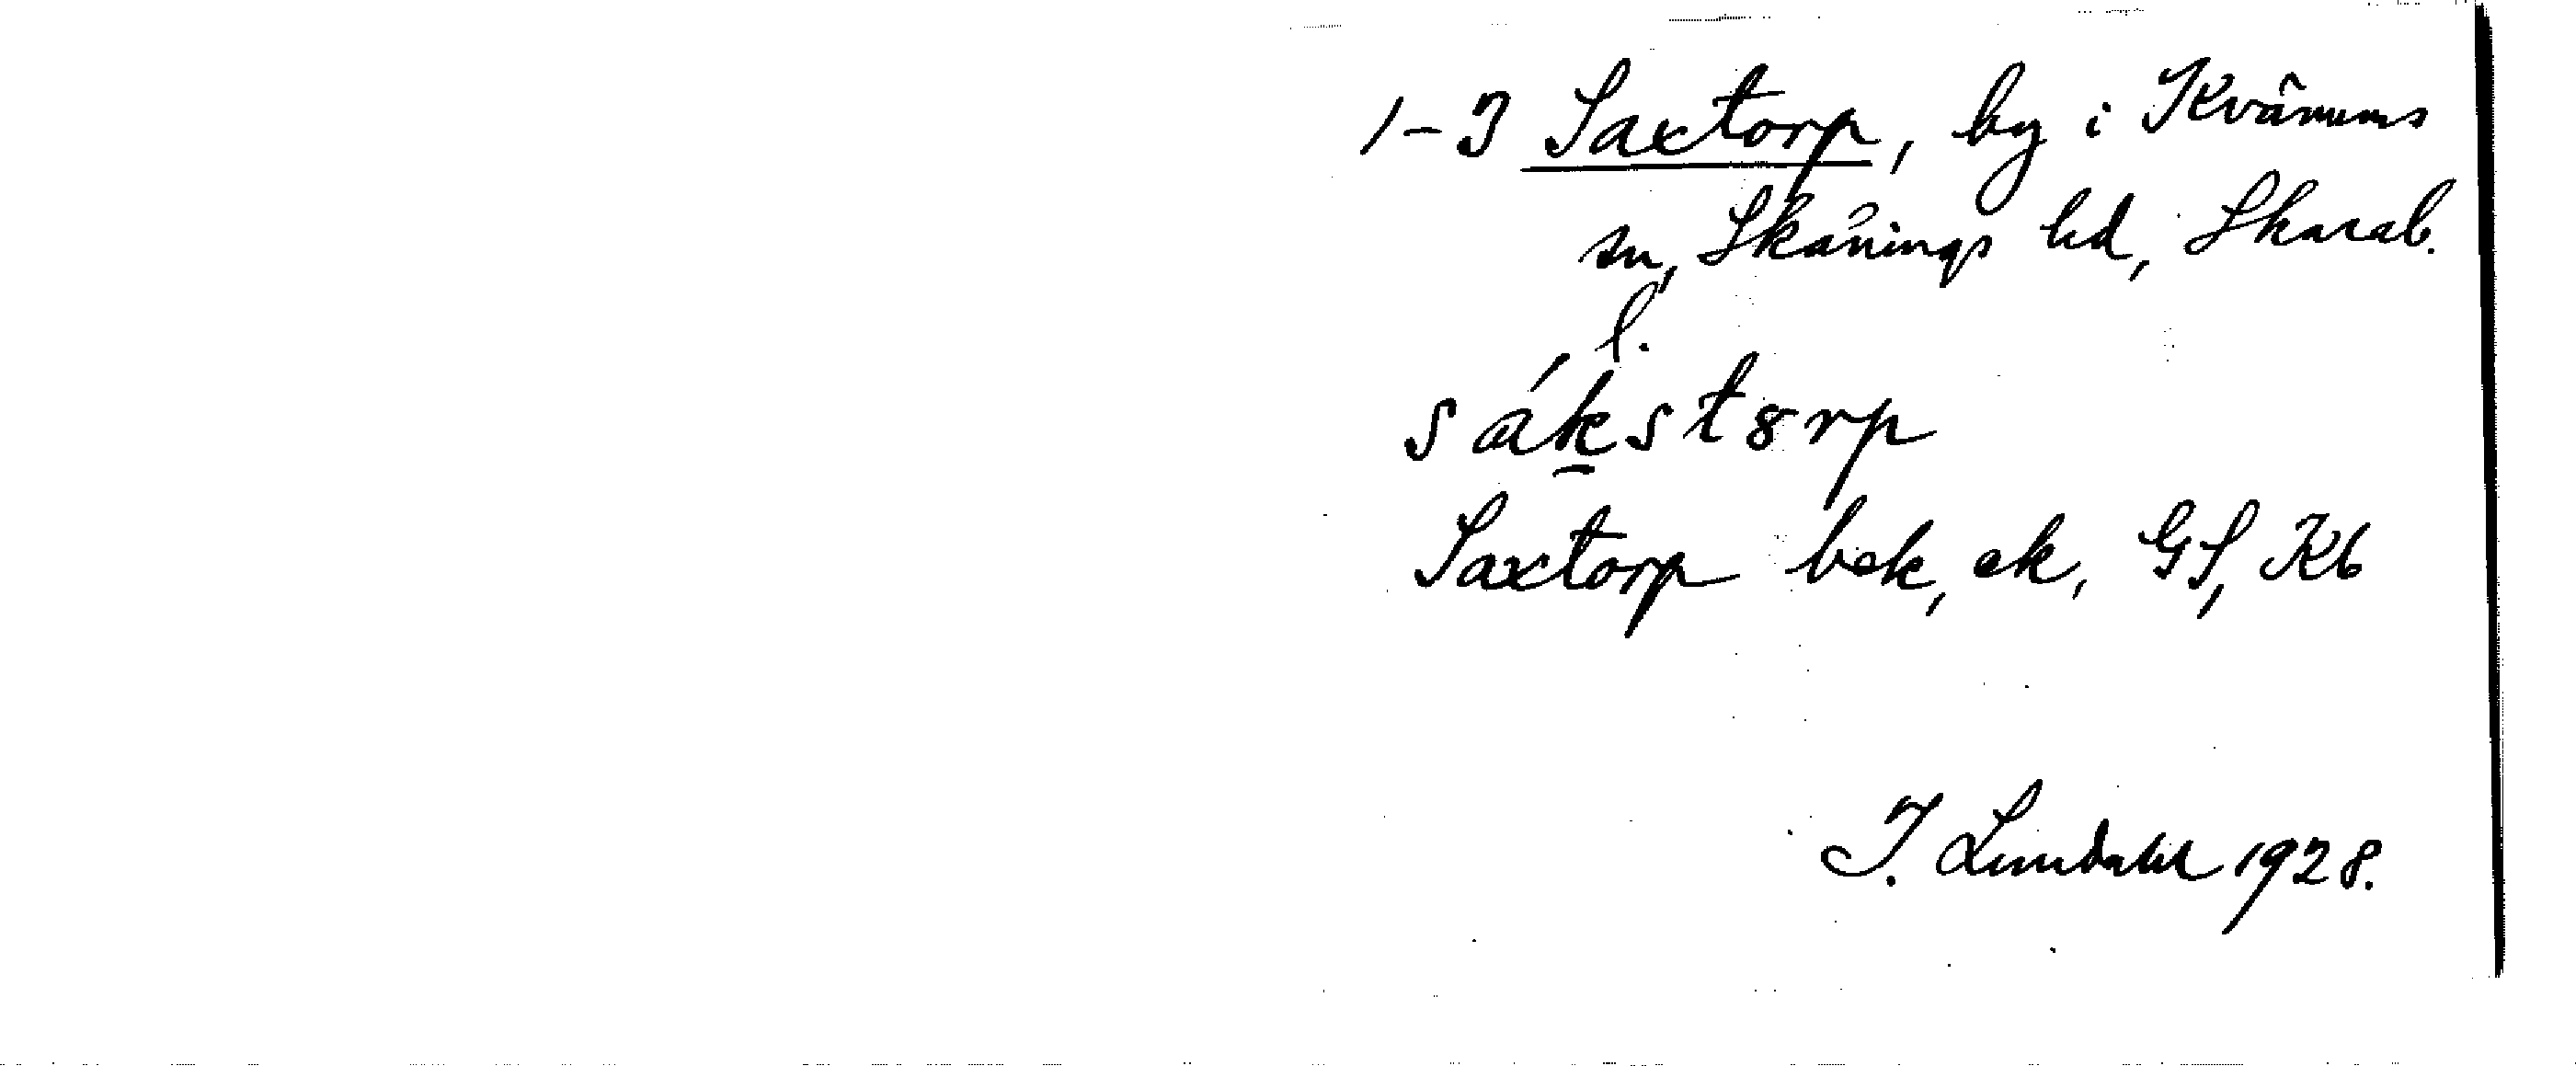 1-3 Saxtorp, by i Kvänums
sn, Skånings hd, Skarab.
l.
sákstȣrp
Saxtorp bek, ek, GS, Kb
J. Lundahl 1928.